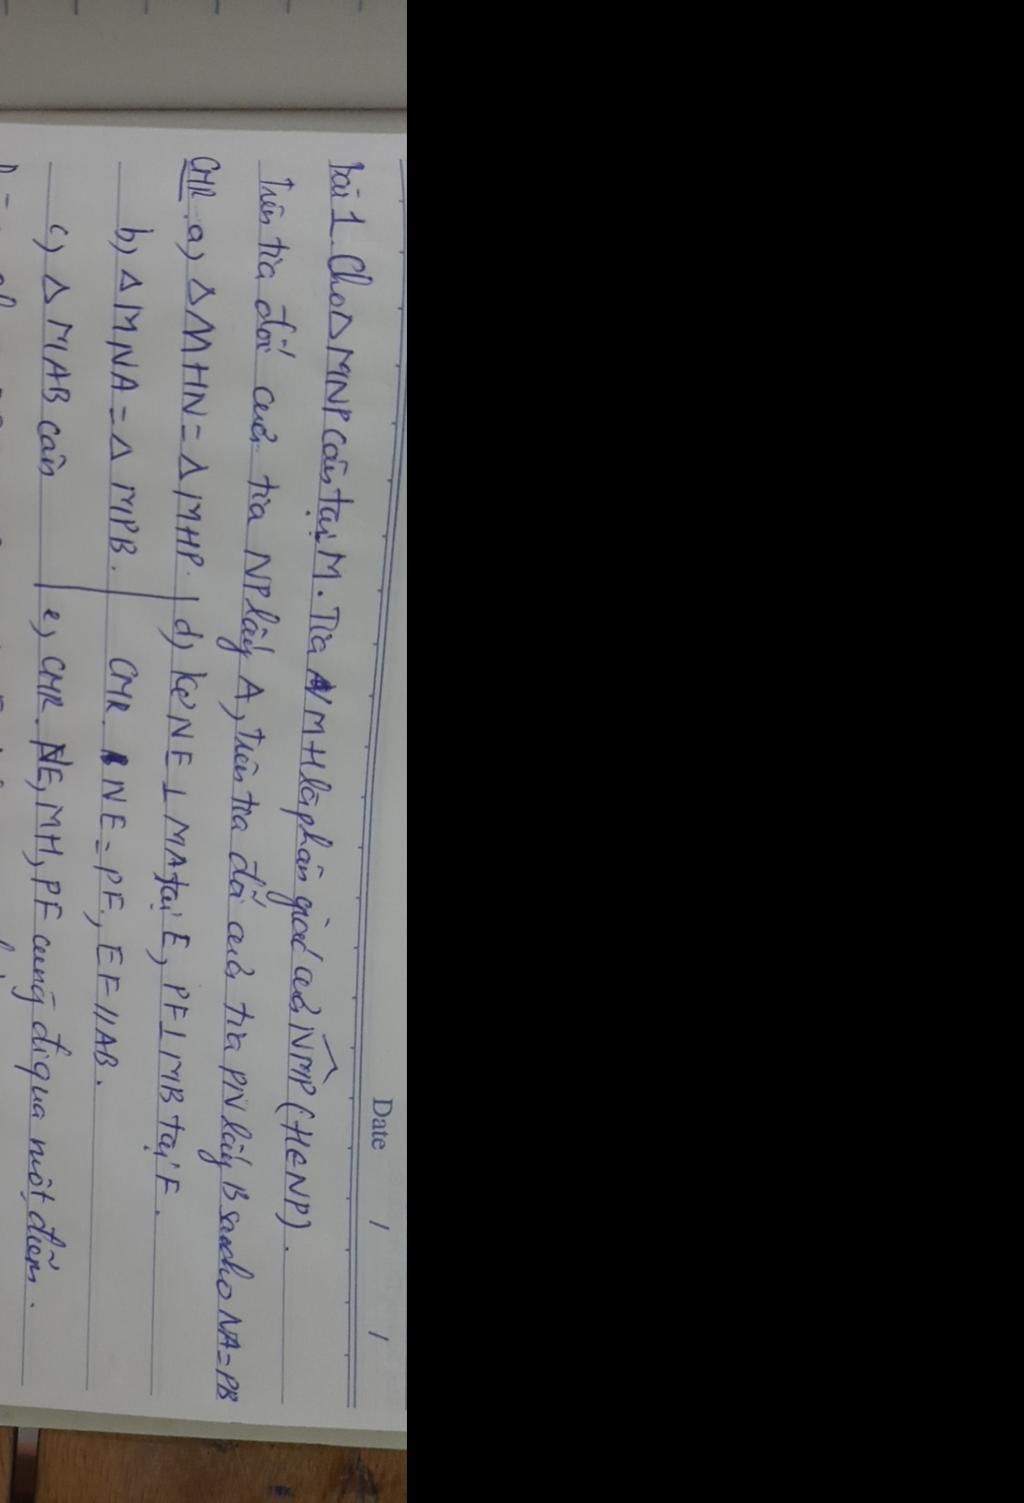 Date / /
Bài 1. Cho Δ MNP cân tại M. Tia MH là phân giác của NMP (H∈NP).
Trên tia đối của tia NP lấy A, Trên tia đối của tia PN lấy B sao cho NA = PB
CMR. a, Δ MHN = Δ MHP. d, Kẻ NE ⊥ MA tại E, PF ⊥ MB tại F.
b, Δ MNA = Δ MPB. CMR. NE = PF, EF // AB.
c, Δ MAB cân e, CMR. NE, MH, PF cùng đi qua một điểm.